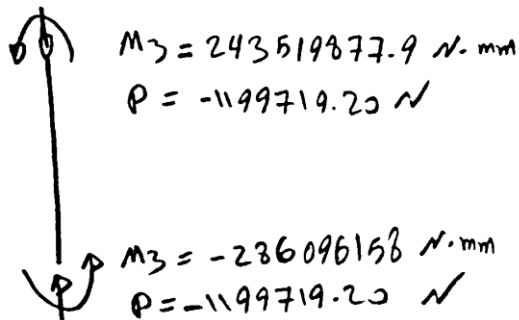 M3 = 243519877.9 N.mm
P = -1199719.20 N
M3 = -286096158 N.mm
P = -1199719.20 N